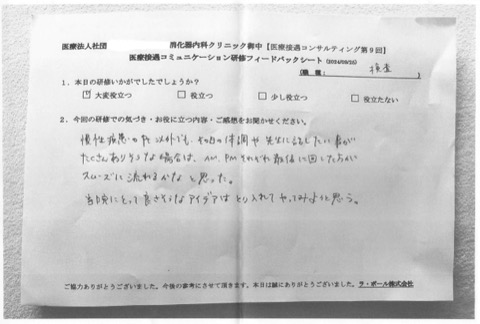 医療法人社団　　　消化器内科クリニック御中【医療接遇コンサルティング第9回】
医療接遇コミュニケーション研修フィードバックシート (2024/09/25)
(職種: 検査 )
1．本日の研修いかがでしたでしょうか？
☑ 大変役立つ　□ 役立つ　□ 少し役立つ　□ 役立たない
2．今回の研修での気づき・お役に立つ内容・ご感想をお聞かせください。
慢性疾患のpt以外でも、その日の体調や先生に話したい事が
たくさんありそうな場合は、AM、PMそれぞれ最後に回した方が
スムーズに流れるかなと思った。
当院にとって良さそうなアイデアはとり入れてやってみようと思う。
ご協力ありがとうございました。今後の参考にさせて頂きます。本日は誠にありがとうございました。ラ・ポール株式会社